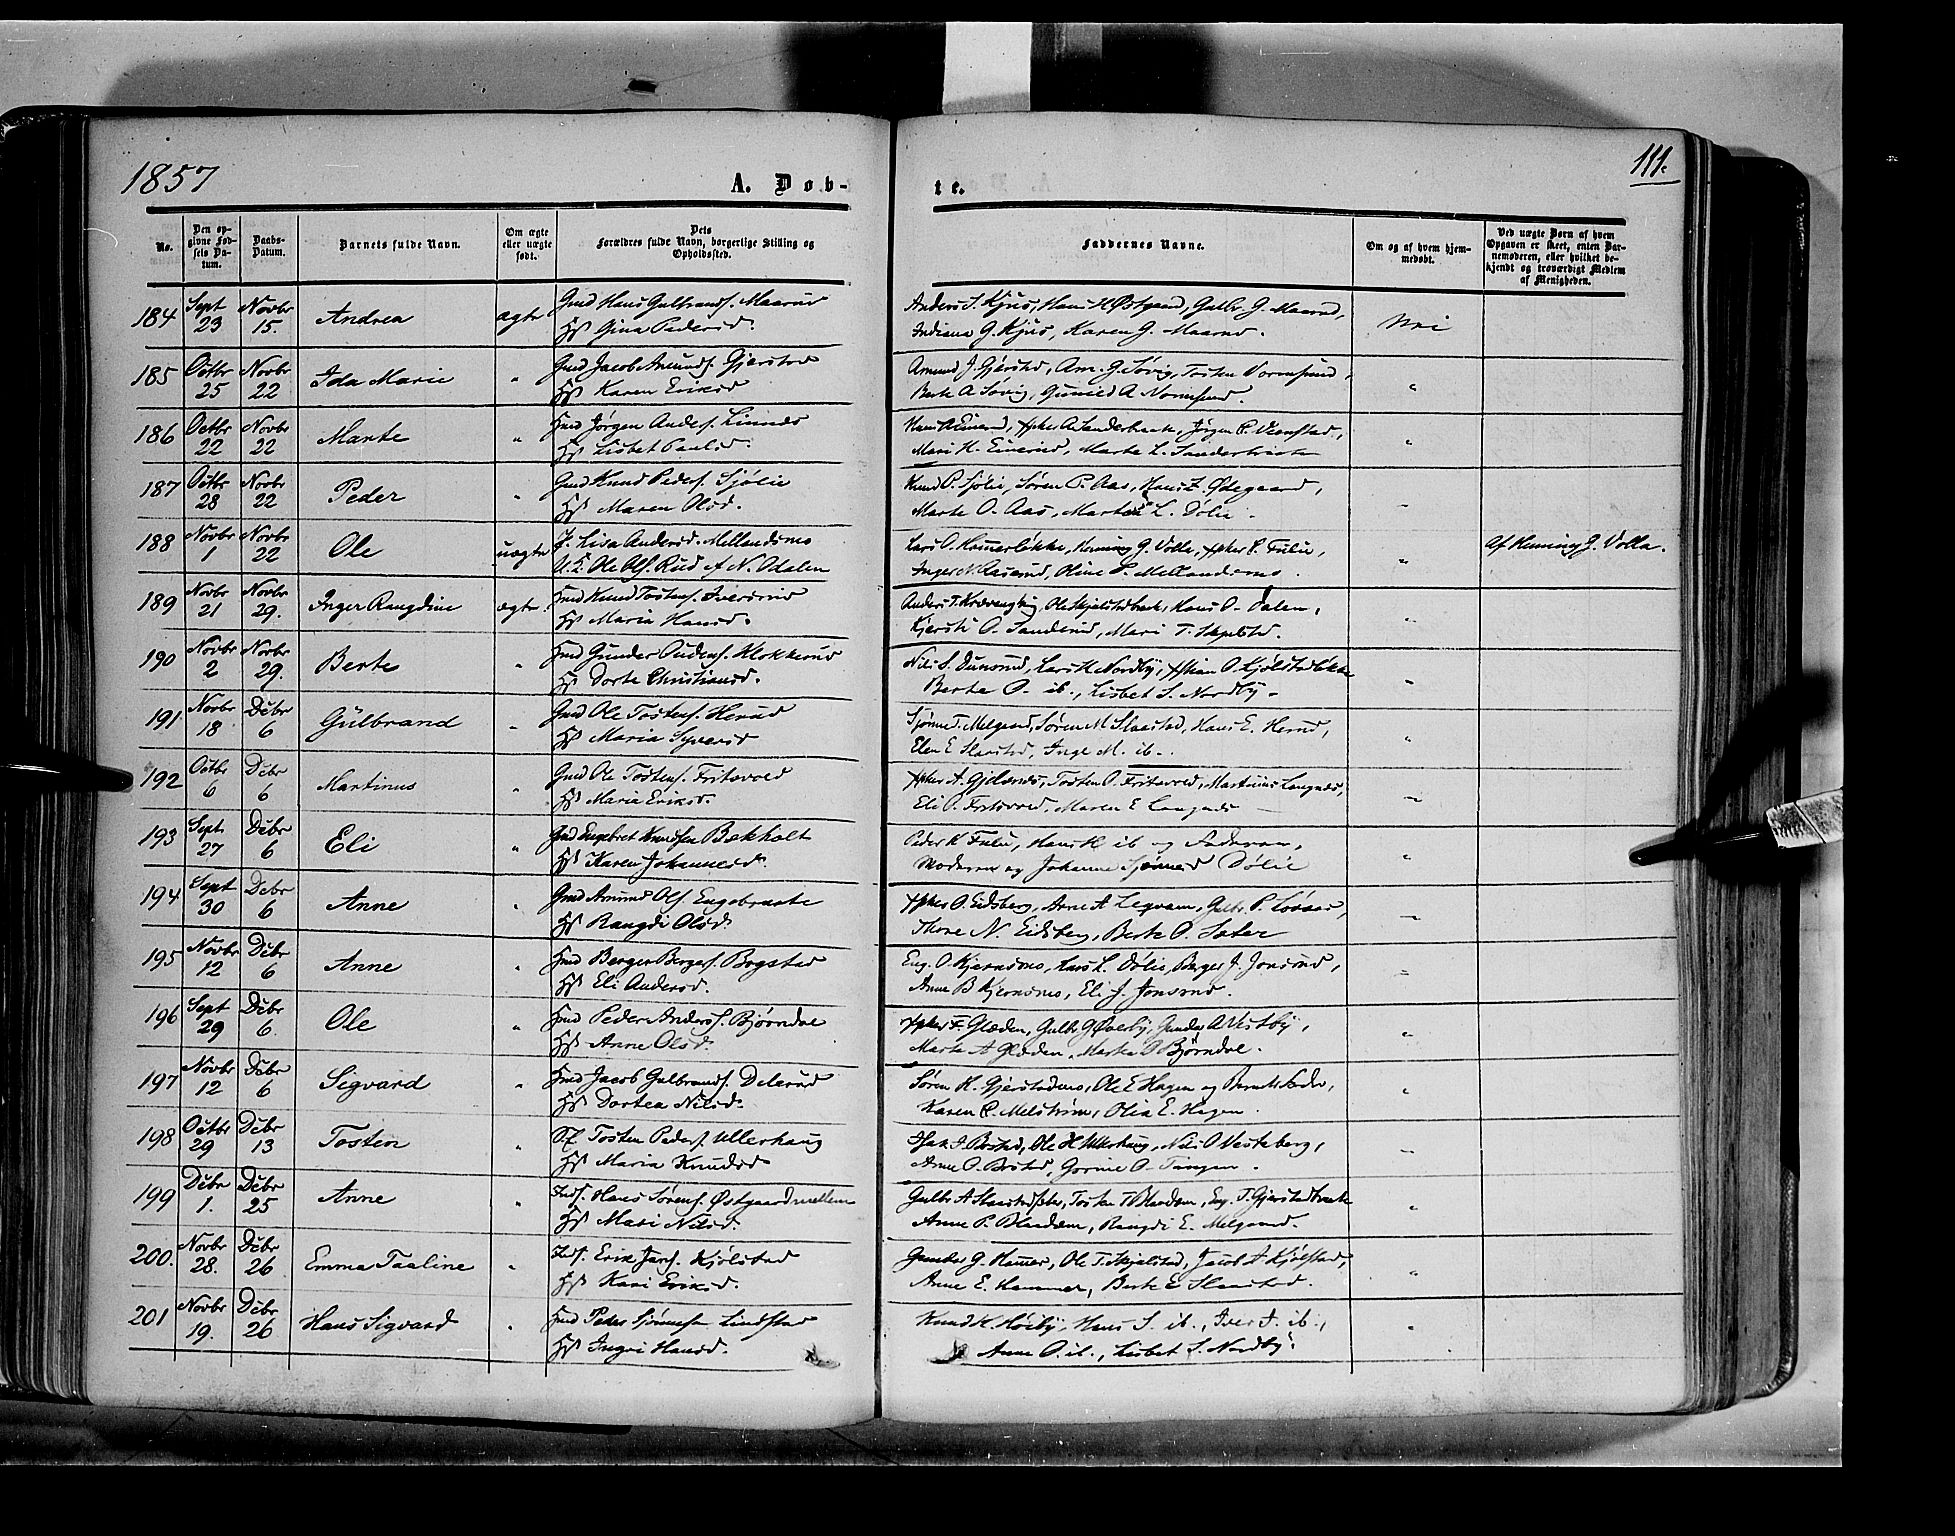 1857
A. Døb-
te.
111.
No.
Den op-
givne Fød-
sels Da-
tum.
Daabs-
Datum.
Barnets fulde Navn.
Om ægte
eller uægte
født.
Dets
Forældres fulde Navn, borgerlige Stilling og
Opholdssted.
Faddernes Navne.
Om og af hvem hjem-
medøbt.
Ved uægte Børn af hvem
Opgaven er skeet, enten Bar-
nemoderen, eller hvilket be-
kjendt og troværdigt Medlem
af Menigheden.
184 Sept 23 Novbr 15. Andrea ægte Gmd Hans Gulbrands. Maarud
Hst Gina Pedersd.
Anders S. Kjus, Hans H Østgaard, Gulbr. G. Maarud,
Indiana G. Kjus, Karen G. Maarud. Nei
185 Octbr 25 Novbr 22 Ida Marie " Gmd Jacob Amunds. Gjerstad
Hst Karen Eriksd
Amund J. Gjerstad, Am. G. Søvig, Tosten Vormsund,
Berte A Søvig, Gunild A Vormsund. "
186 Octbr 22 Novbr 22 Marte " Hmd Jørgen Anders. Linnæs
Hst Lisbet Paulsd.
Mari H.
187 Octbr 28 Novbr 22 Peder " Gmd Knud Peders. Sjølie
Hst Maren Olsd.
Knud P. Sjølie, Søren P. Aas, Hans Z. Ødegaard,
Marte O. Aas, Marte L. Dølie. "
188 Novbr 1 Novbr 22 Ole uægte P. Lisa Andersd. Mellandsmo
U.K. Ole Ols. Rud af N. Odalen
Lars O. Hamarløkke, Henning G. Volla,
Inger N. Aaserud, Oline P. Mellandsmo. " Af Henning G. Volla.
189 Novbr 21 Novbr 29. Inger Rangdine ægte. Hmd Knud Tostens. Iversrud
Hst Maria Hansd.
Hans O. Dalen,
Kjersti O. Sanderud, Mari T. Skjelstd. "
190 Novbr 2 Novbr 29. Berte " Hmd Gunder Audens. Klokkerud
Hst Dorte Christiansd.
Nils S. Dunsrud, Lars H. Nordby,
Berte O. ib., Lisbet S. Nordby. "
191 Novbr 18 Dcbr 6 Gulbrand " Gmd Ole Tostens. Herud
Hst Maria Syversd
Melgaard, Søren M. Slaastad, Hans E. Herud,
Elen E Slaastad, Inge M. ib. "
192 Octbr 6 Dcbr 6 Martinus " Gmd Ole Tostens. Fritsvold
Hst Maria Eriksd.
Tosten O. Fritsvold, Martinus Langnæs,
Eli O. Fritsvold, Maren E Langnæs "
193 Sept. 27 Dcbr 6 Eli " Gmd Engebret Knudsen Bækholt
Hst Karen Johannesd.
Peder K Fulu, Hans H ib og Faderen,
Moderen og Johanne Dølie "
194 Sept 30 Dcbr 6 Anne " Gmd Amund Ols. Engebraate
Hst Rangdi Olsd.
Eidsberg, Arne A Legvam, Gulbr. P.
Thore N. Eidsberg, Berte O. Sæter "
195 Novbr 12 Dcbr 6 Anne " Hmd Berger Bergers. Bogstad
Hst Eli Andersd.
Eng. O. Kjernsmo, Lars L. Dølie, Berger J. Jonsrud,
Anne B Kjernsmo, Eli J. Jonsrud. "
196 Sept 29 Dcbr 6. Ole " Hmd Peder Anders. Bjørndal
Hst Anne Olsd.
Glæden, Gulbr G Øveby, Gunder A Vestby,
Marte A Glæden, Marthe O Bjørndal. "
197 Novbr 12 Dcbr 6 Sigvard " Hmd Jacob Gulbrands. Delerud
Hst Dortea Nilsd.
Søren K. Gjerstadmo, Ole E Hagen og Barnets Fader,
Karen P. Melstrøm, Olia E. Hagen. "
198 Octbr 29 Dcbr 13 Tosten " Tosten Peders. Ullerhaug
Hst Maria Knudsd
Ole H Ullerhaug, Nils O Vesteberg,
Anne O. Bostad, Gorine O. Tangen. "
199 Dcbr 1. Dcbr 25 Anne " Inds. Hans Sørens. Østgaardmellem
Hst Mari Nilsd.
Gulbr A Tosten T Blaadom, Eng. T. Gjerstadbræk
Anne P. Blaadom, Rangdi E. Melgaard. "
200. Novbr 28. Dcbr 26 Emma Taaline " Inds. Erik Kjølstad
Hst Kari Eriksd.
Gunder G. Hamer, Ole T. Skjalstad, Jacob A Kjølstad,
Anne E. Hammer, Berte E Slaastad. "
201 Novbr 19. Dcbr 26 Hans Sigvard " Hmd Peder Sjønnesen Lindstad
Hst Ingri Hansd.
Knud K. Høiby, Hans S. ib., Iver I. ib.,
Anne O. ib., Lisbet S. Nordby. "